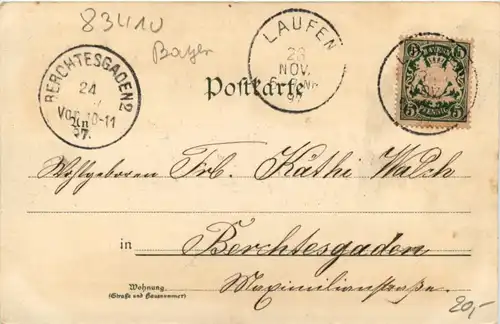 83410
Bayern
BERCHTESGADEN 2
24
NOV.
Vor. 10-11
97.
LAUFEN
23
NOV.
97
Postkarte
BAYERN
5 5
PFENNIG
Wohlgeboren Frl. Käthi Walch
in Berchtesgaden
Wohnung
(Straße und Hausnummer)
Maximilianstraße.
20,-